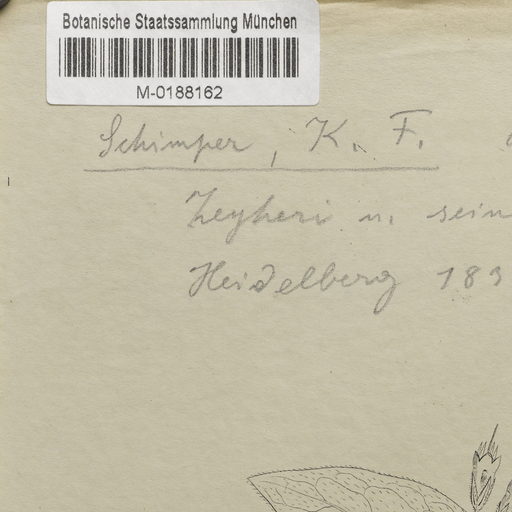 Botanische Staatssammlung München
M-0188162
Schimper, K. F.
Zeyheri u. sein
Heidelberg 183